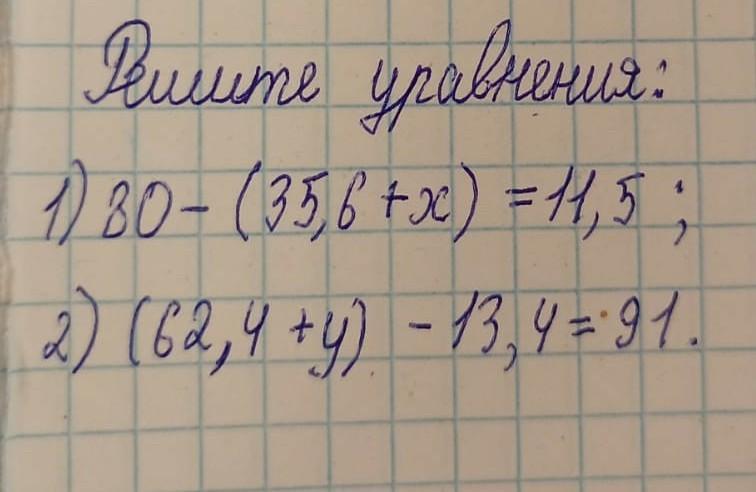 Решите уравнения:
1) 80 - (35,6 + x) = 11,5 ;
2) (62,4 + y) - 13,4 = 91.